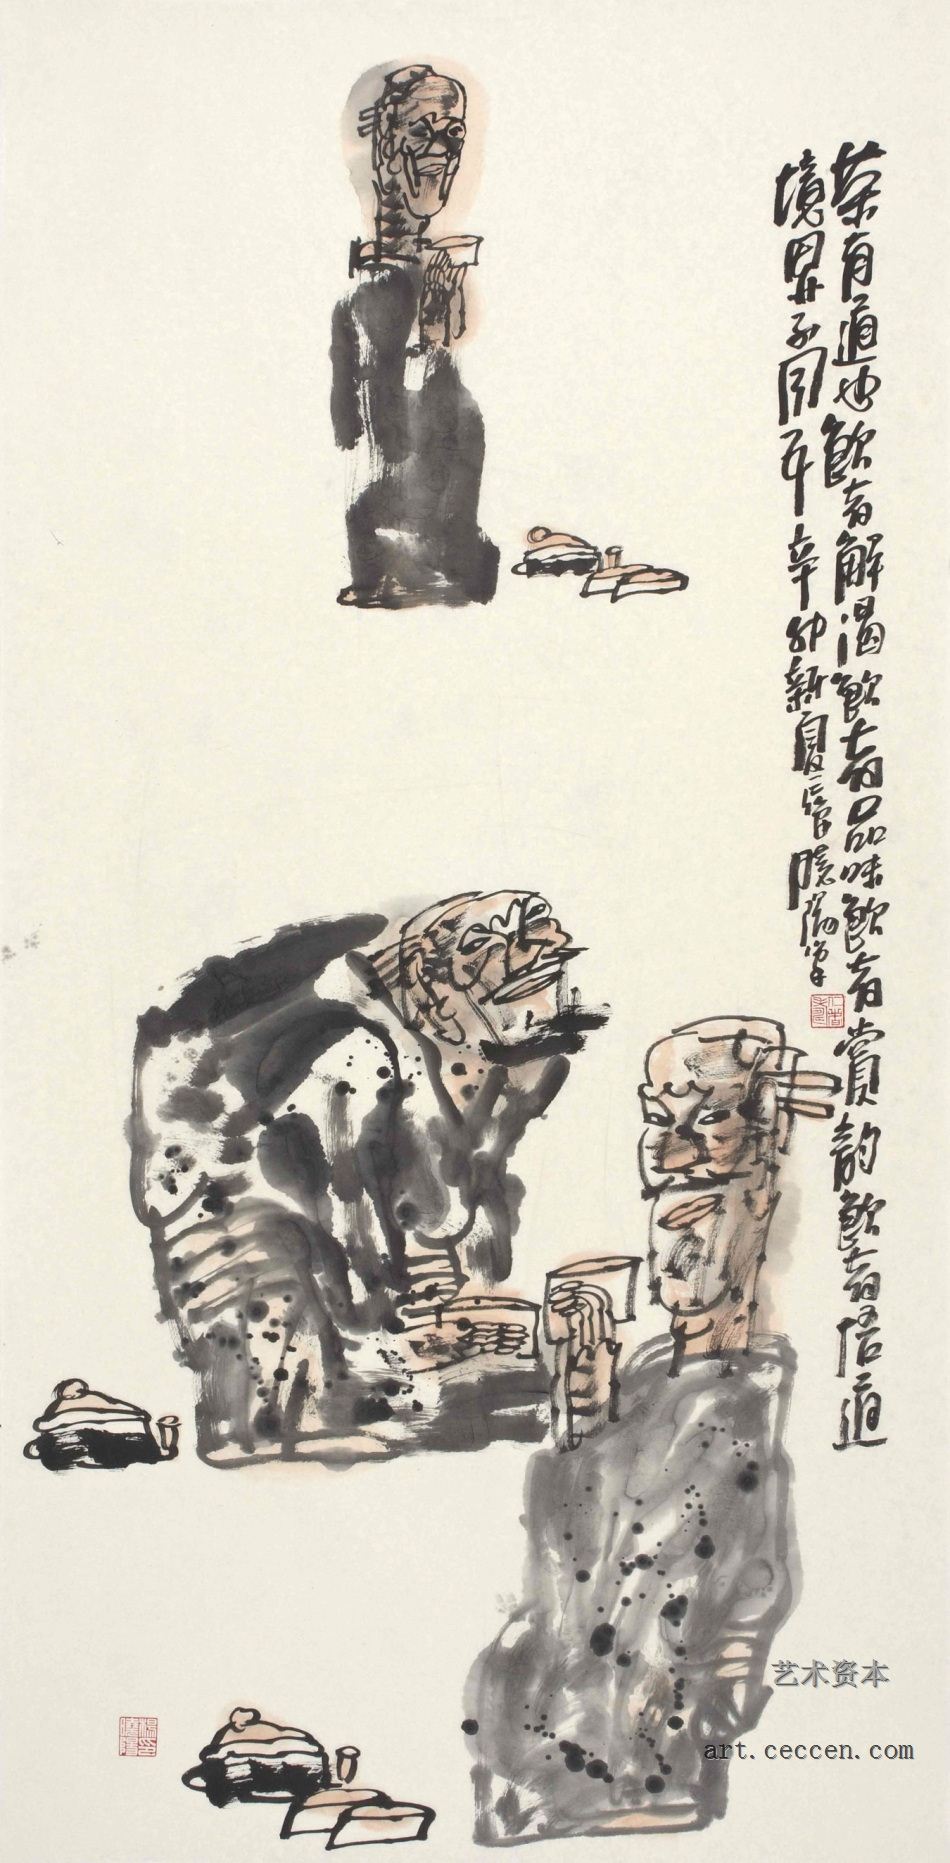 茶有道也飲者解渴飲者品味飲者賞韵飲者悟道
境界不同耳辛卯新夏
艺术资本
art.ceccen.com